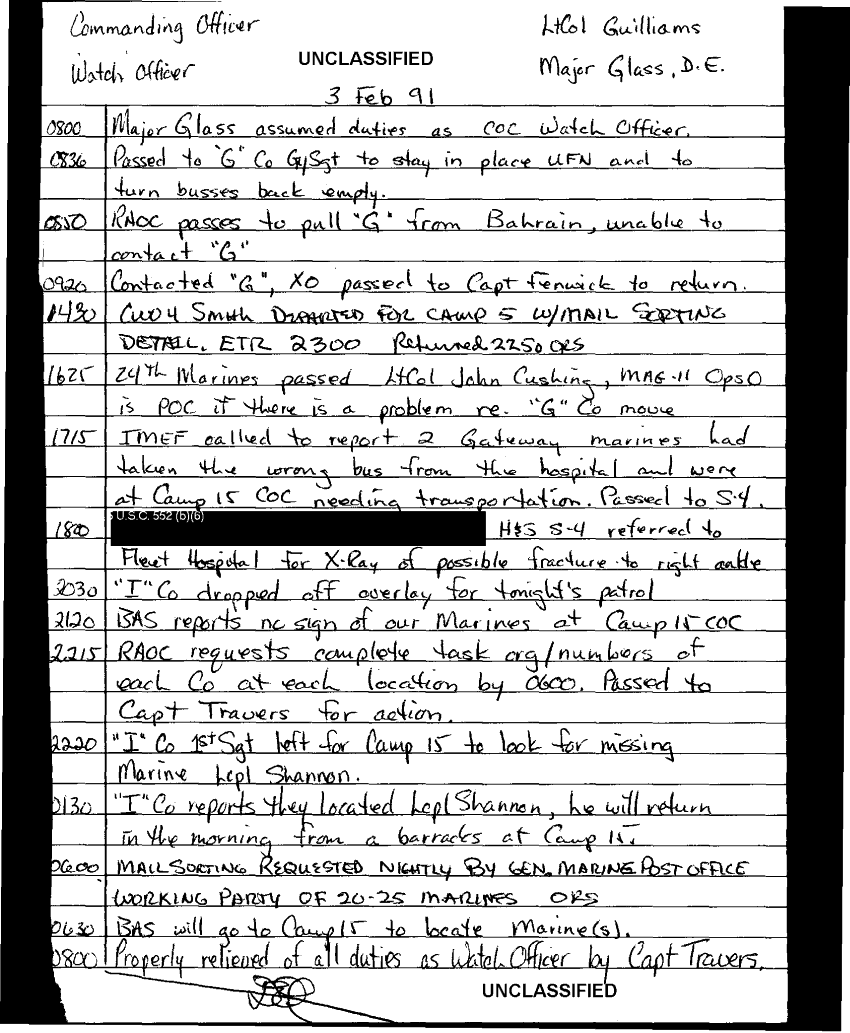 Commanding Officer LtCol Guilliams
UNCLASSIFIED
Watch Officer Major Glass, D.E.
3 Feb 91
0800 Major Glass assumed duties as COC Watch Officer.
0836 Passed to "G" Co GySgt to stay in place UFN and to
turn busses back empty.
0850 RAOC passes to pull "G" from Bahrain, unable to
contact "G"
0920 Contacted "G", XO passed to Capt Fenwick to return.
1430 CWO4 Smith DEPARTED FOR CAMP 5 W/MAIL SORTING
DETAIL. ETR 2300 Returned 2250 ORS
1625 24th Marines passed LtCol John Cushing, MAG-11 OpsO
is POC if there is a problem re. "G" Co move
1715 IMEF called to report 2 Gateway marines had
taken the wrong bus from the hospital and were
at Camp 15 COC needing transportation. Passed to S-4.
U.S.C. 552 (b)(6)
1800 H&S S-4 referred to
Fleet Hospital for X-Ray of possible fracture to right ankle
2030 "I" Co dropped off overlay for tonight's patrol
2120 BAS reports no sign of our Marines at Camp 15 COC
2215 RAOC requests complete task org/numbers of
each Co at each location by 0600. Passed to
Capt Travers for action.
2220 "I" Co 1stSgt left for Camp 15 to look for missing
Marine Lcpl Shannon.
0130 "I" Co reports they located Lcpl Shannon, he will return
in the morning from a barracks at Camp 15.
0600 MAIL SORTING REQUESTED NIGHTLY BY GEN. MARINE POST OFFICE
WORKING PARTY OF 20-25 MARINES ORS
0630 BAS will go to Camp 15 to locate Marine(s).
0800 Properly relieved of all duties as Watch Officer by Capt Travers.
UNCLASSIFIED